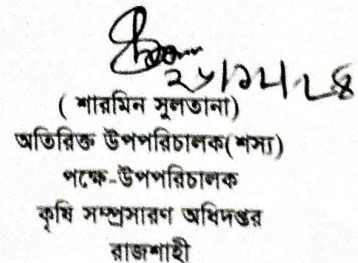 ( শারমিন সুলতানা)
অতিরিক্ত উপপরিচালক(শস্য)
পক্ষে-উপপরিচালক
কৃষি সম্প্রসারণ অধিদপ্তর
রাজশাহী